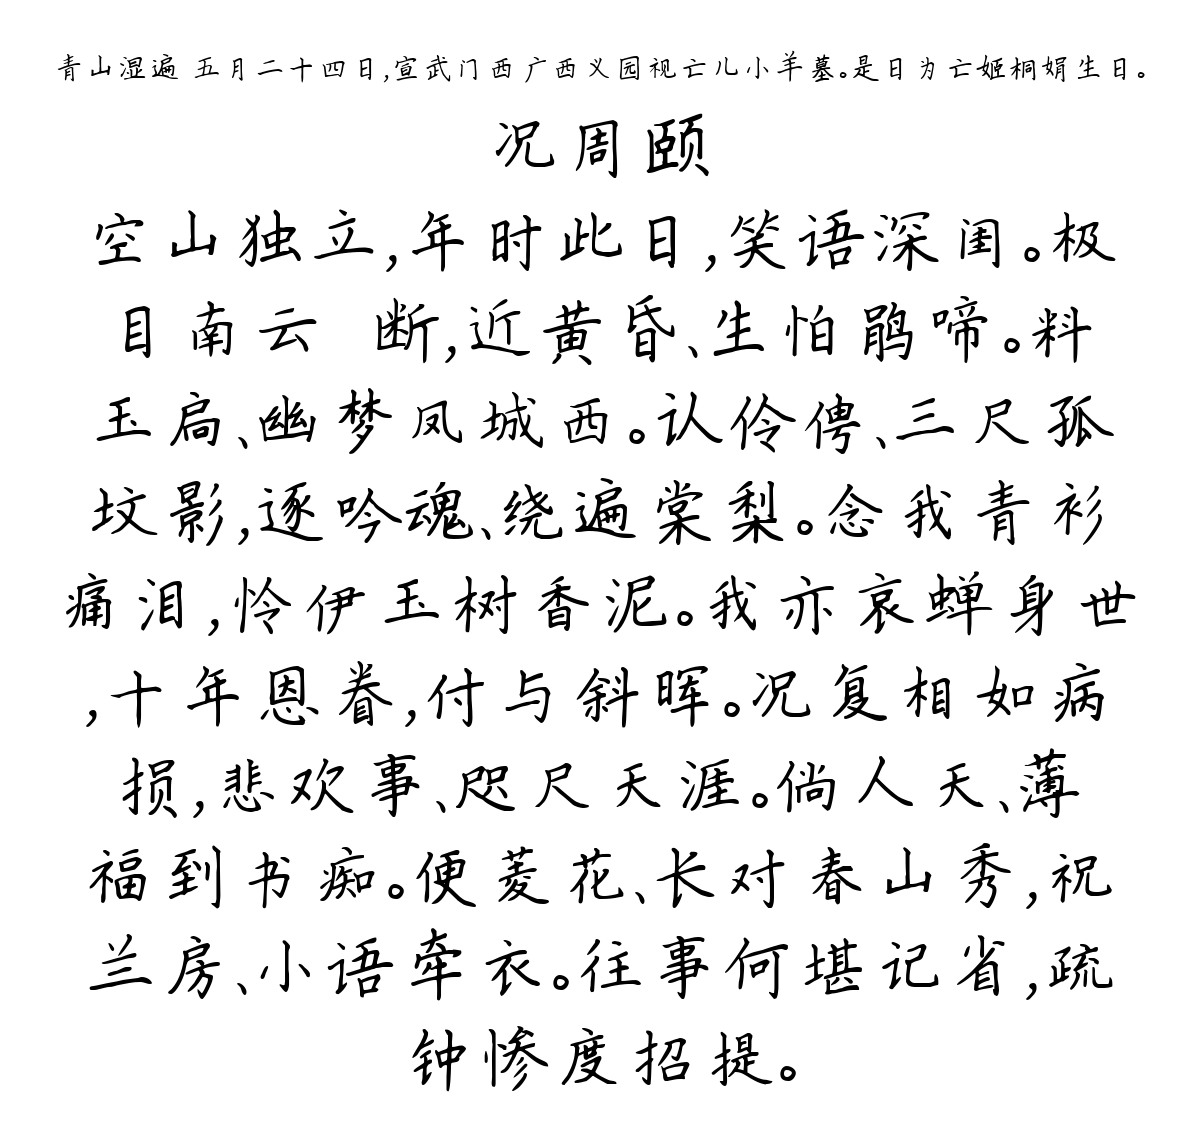 青山湿遍 五月二十四日,宣武门西广西义园视亡儿小羊墓。是日为亡姬桐娟生日。
况周颐
空山独立,年时此日,笑语深闺。极
目南云 断,近黄昏、生怕鹃啼。料
玉扃、幽梦凤城西。认伶俜、三尺孤
坟影,逐吟魂、绕遍棠梨。念我青衫
痛泪,怜伊玉树香泥。我亦哀蝉身世
,十年恩眷,付与斜晖。况复相如病
损,悲欢事、咫尺天涯。倘人天、薄
福到书痴。便菱花、长对春山秀,祝
兰房、小语牵衣。往事何堪记省,疏
钟惨度招提。